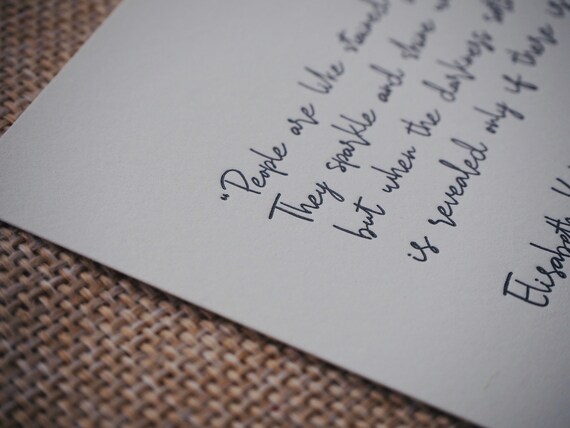 "People are like stained
They sparkle and shine w
but when the darkness sets
is revealed only if there is
Elisabeth K